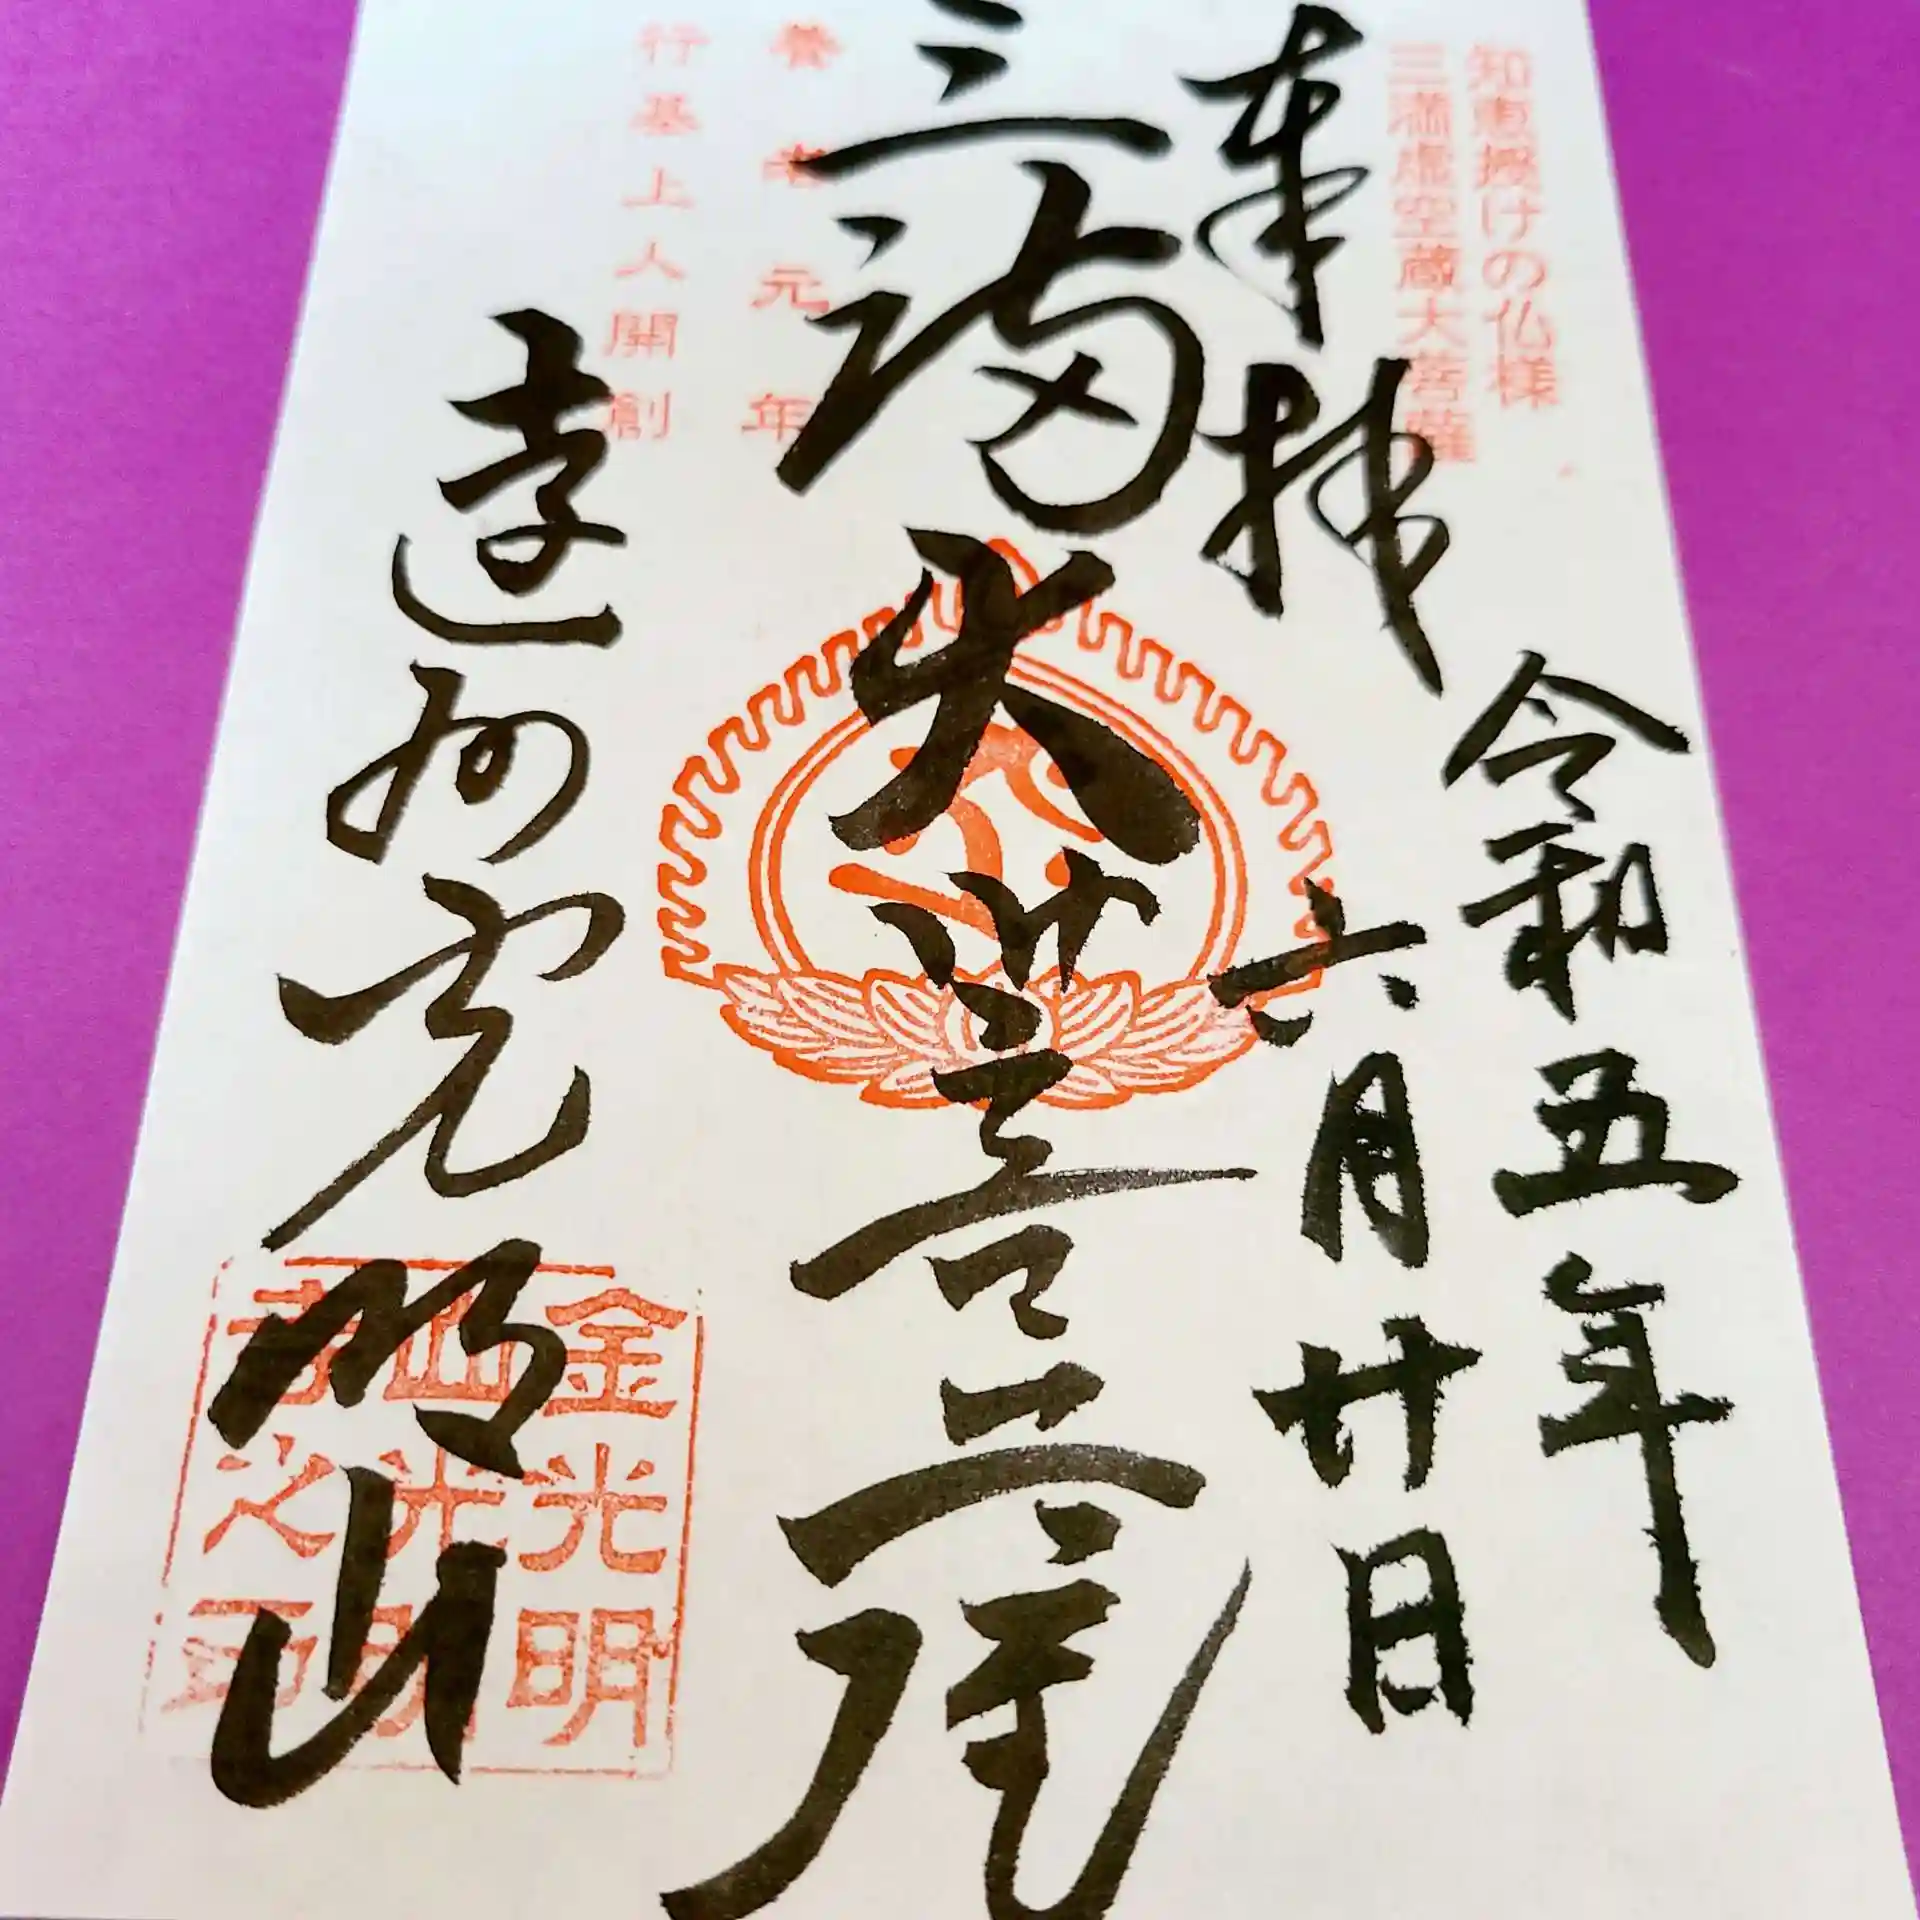 知恵授けの仏様
三満虚空蔵大菩薩
奉拝
令和五年
六月廿日
三満大菩薩
養老元年
行基上人開創
遠州光明山
金光明
山光明
寺之印